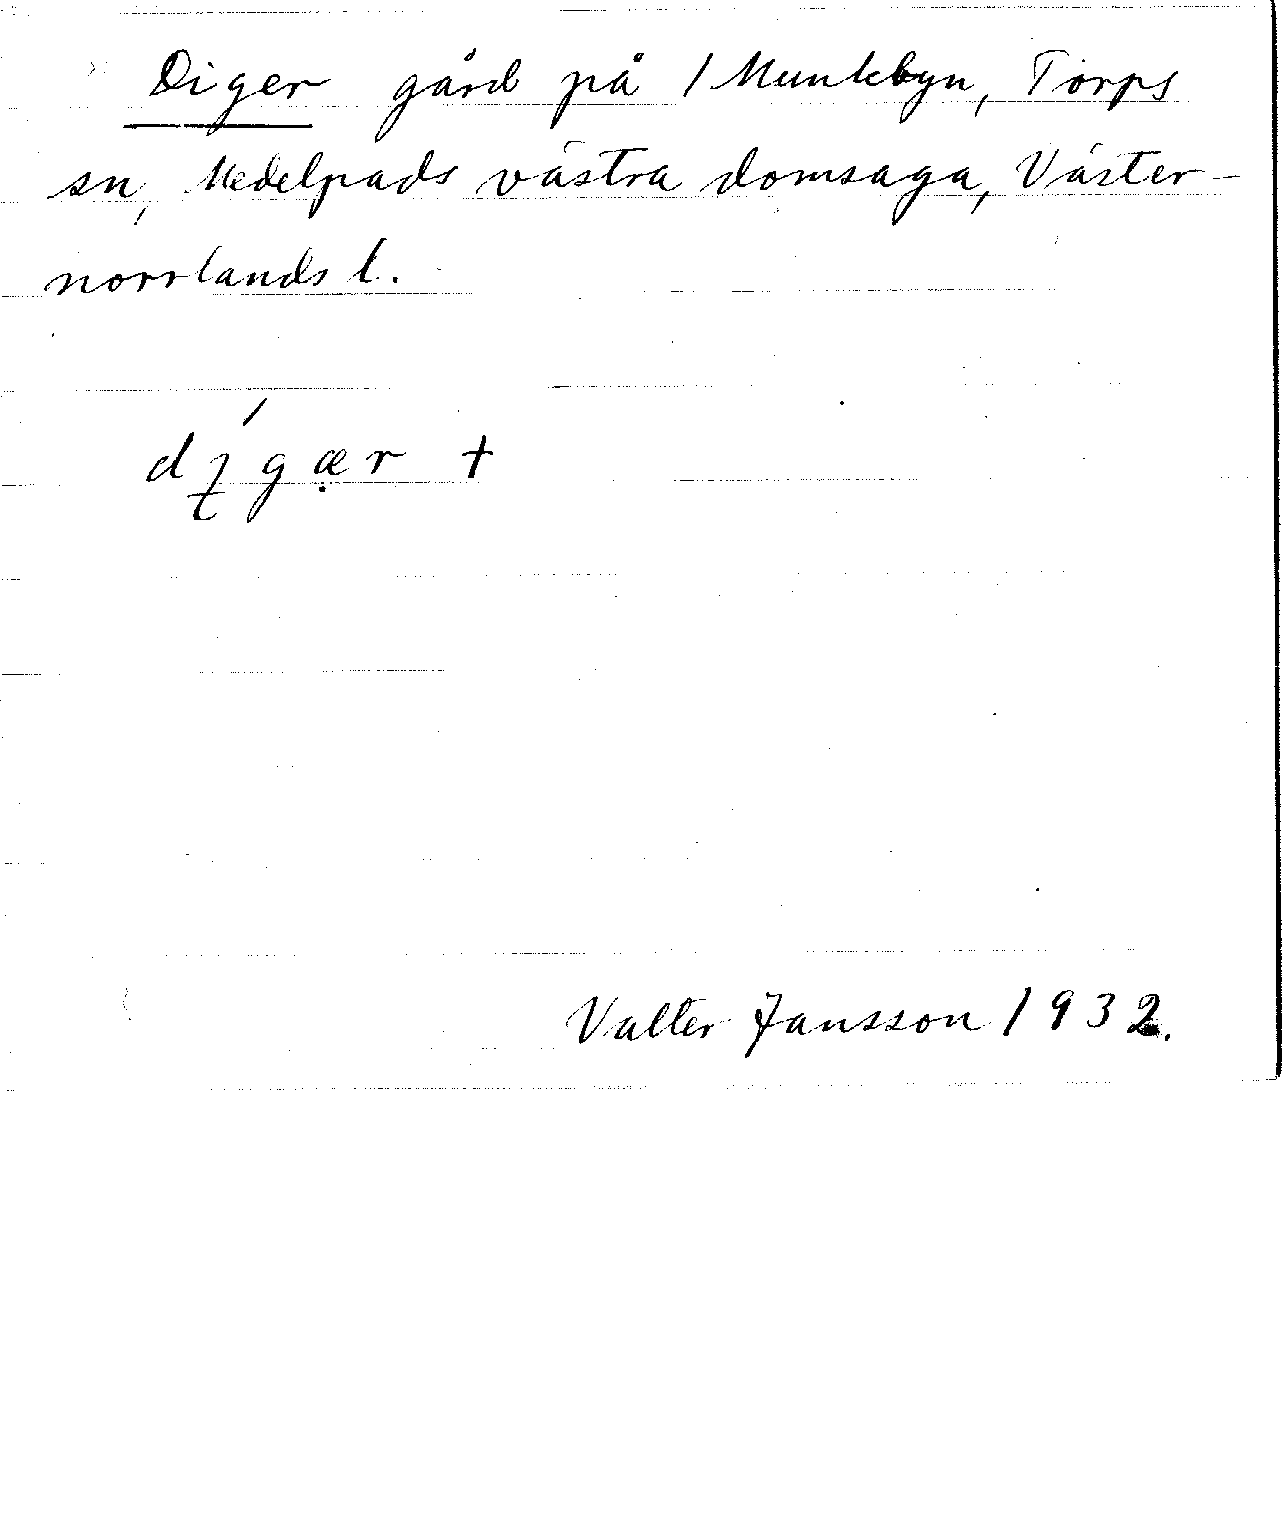 Diger gård på 1 Munkbyn, Torps
sn, Medelpads västra domsaga, Väster-
norrlands l.
Valter Jansson 1932.